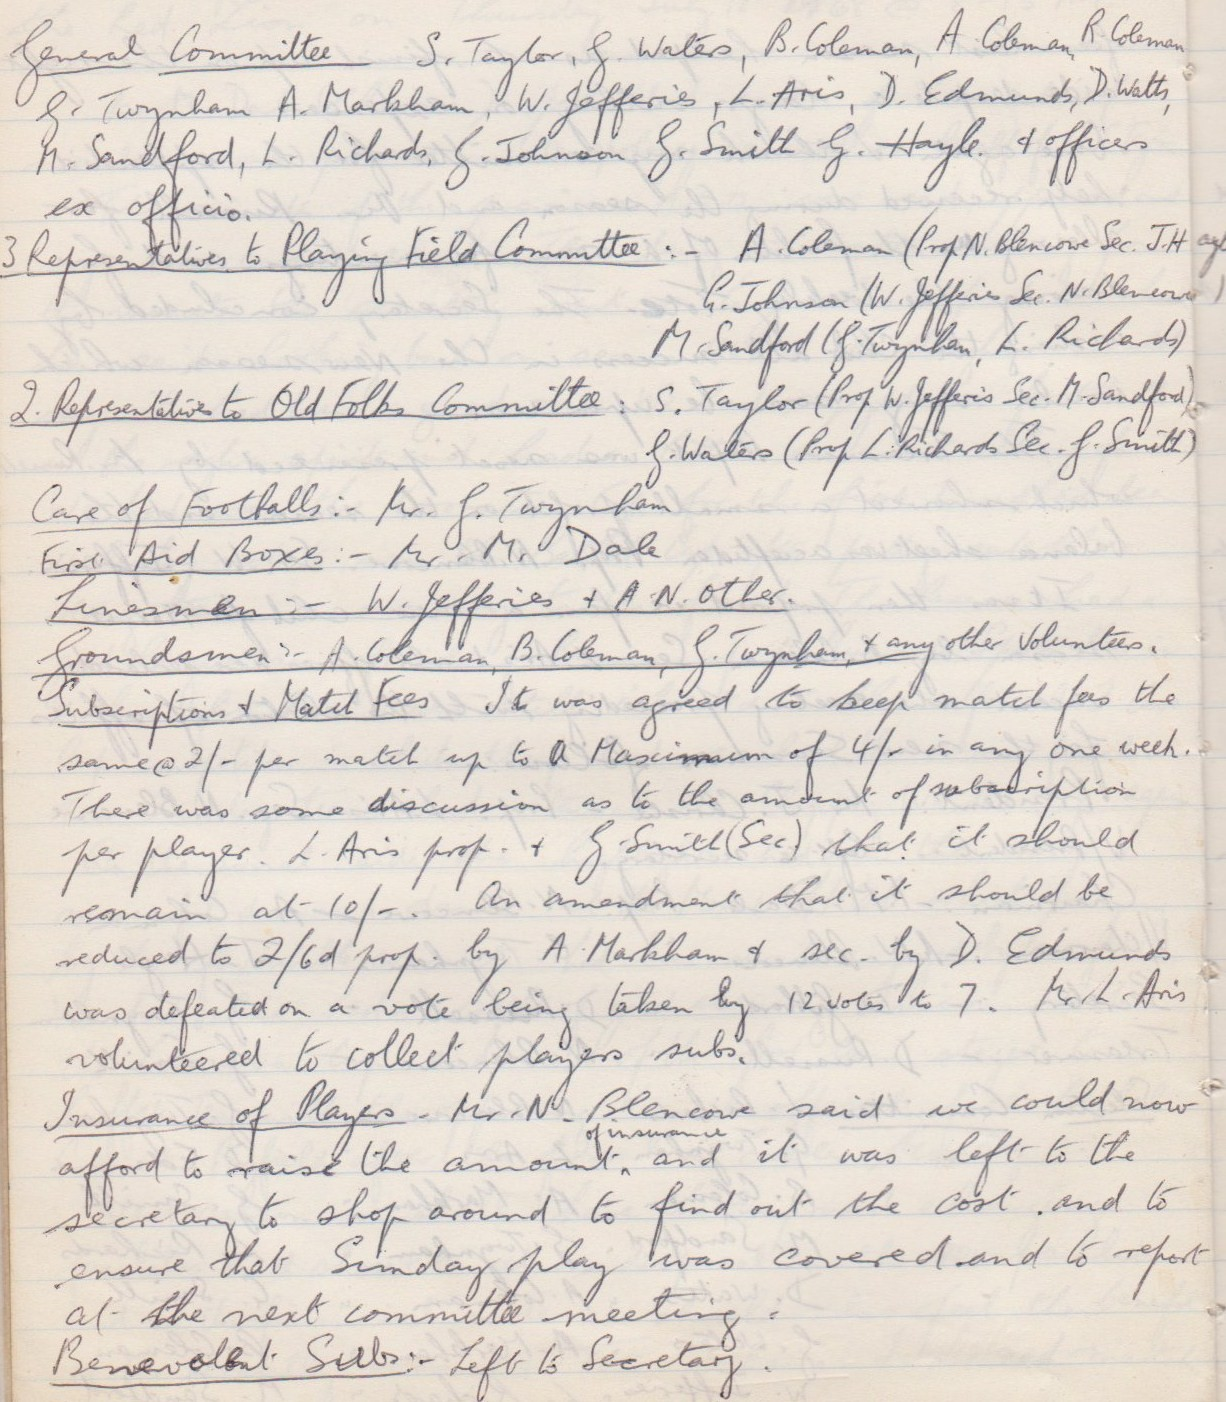 General Committee S. Taylor, G. Waters, B. Coleman, A Coleman, R. Coleman
G. Twynham A. Markham, W. Jefferies, L. Aris, D. Edmunds, D. Watts,
M. Sandford, L. Richards, G. Johnson G. Smith G. Hayle. & officers
ex officio.
3 Representatives to Playing Field Committee :- A. Coleman (Prop N. Blencowe Sec. J. Hayle
G. Johnson (W. Jefferies Sec. N. Blencowe)
M. Sandford (G. Twynham, L. Richards)
2. Representatives to Old Folks Committee : S. Taylor (Prop W. Jefferis Sec. M. Sandford)
G. Waters (Prop L. Richards Sec. G. Smith)
Care of Footballs :- Mr. G. Twynham
First Aid Boxes :- Mr. M. Dale
Linesmen :- W. Jefferies & A. N. Other.
Groundsmen :- A. Coleman, B. Coleman, G. Twynham, & any other Volunteers.
Subscriptions & Match Fees It was agreed to keep match fees the
same @ 2/- per match up to a Maximum of 4/- in any one week.
There was some discussion as to the amount of subscription
per player. L. Aris prop. & G. Smith (Sec) that it should
remain at 10/-. An amendment that it should be
reduced to 2/6d prop. by A Markham & sec. by D. Edmunds
was defeated on a vote being taken by 12 votes to 7. Mr. L. Aris
volunteered to collect players subs.
Insurance of Players - Mr. N. Blencowe said we could now
of insurance
afford to raise the amount, and it was left to the
secretary to shop around to find out the cost. and to
ensure that Sunday play was covered and to report
at the next committee meeting.
Benevolent Subs :- Left to Secretary.